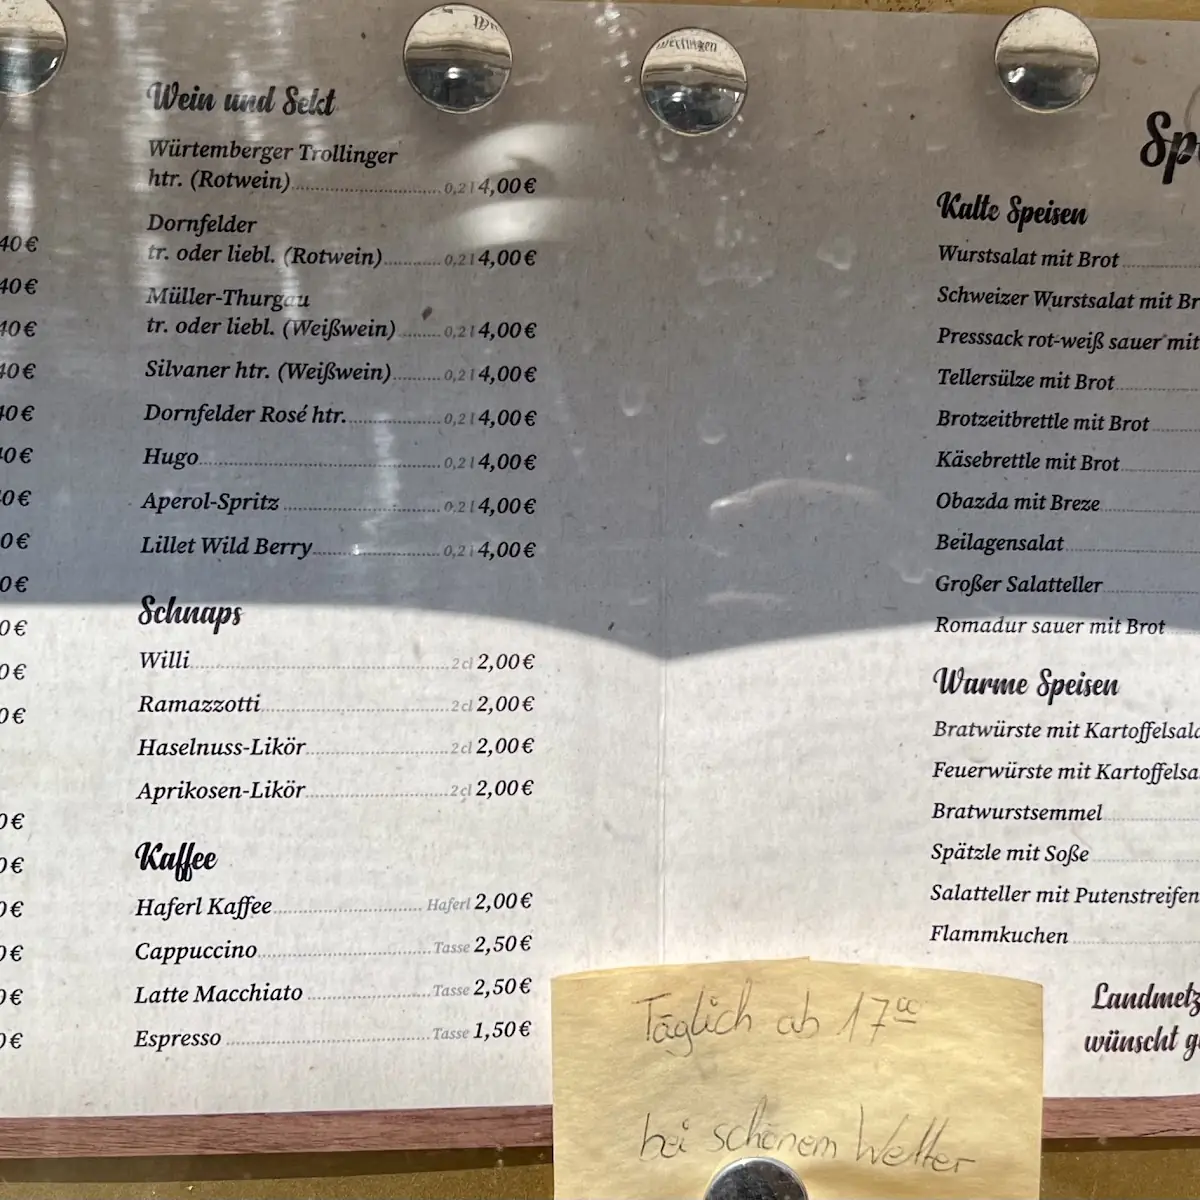 40 €
40 €
40 €
40 €
40 €
40 €
0 €
0 €
0 €
0 €
0 €
0 €
0 €
0 €
0 €
0 €
0 €
0 €
Wein und Sekt
Würtemberger Trollinger
htr. (Rotwein) 0,2 l 4,00 €
Dornfelder
tr. oder liebl. (Rotwein) 0,2 l 4,00 €
Müller-Thurgau
tr. oder liebl. (Weißwein) 0,2 l 4,00 €
Silvaner htr. (Weißwein) 0,2 l 4,00 €
Dornfelder Rosé htr. 0,2 l 4,00 €
Hugo 0,2 l 4,00 €
Aperol-Spritz 0,2 l 4,00 €
Lillet Wild Berry 0,2 l 4,00 €
Schnaps
Willi 2 cl 2,00 €
Ramazzotti 2 cl 2,00 €
Haselnuss-Likör 2 cl 2,00 €
Aprikosen-Likör 2 cl 2,00 €
Kaffee
Haferl Kaffee Haferl 2,00 €
Cappuccino Tasse 2,50 €
Latte Macchiato Tasse 2,50 €
Espresso Tasse 1,50 €
Sp
Kalte Speisen
Wurstsalat mit Brot
Schweizer Wurstsalat mit Br
Presssack rot-weiß sauer mit
Tellersülze mit Brot
Brotzeitbrettle mit Brot
Käsebrettle mit Brot
Obazda mit Breze
Beilagensalat
Großer Salatteller
Romadur sauer mit Brot
Warme Speisen
Bratwürste mit Kartoffelsala
Feuerwürste mit Kartoffelsa
Bratwurstsemmel
Spätzle mit Soße
Salatteller mit Putenstreifen
Flammkuchen
Landmetz
wünscht g
Täglich ab 17⁰⁰
bei schönem Wetter